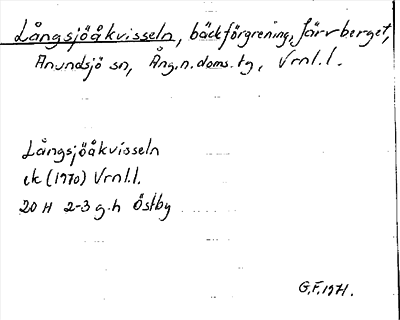 Långsjöåkvisseln, bäckförgrening, Järvberget,
Anundsjö sn, Ång.n.doms.tg, Vrnl.l.
Långsjöåkvisseln
ek (1970) Vrnl.l.
20 H 2-3 g.h Östby
G.F. 1971.